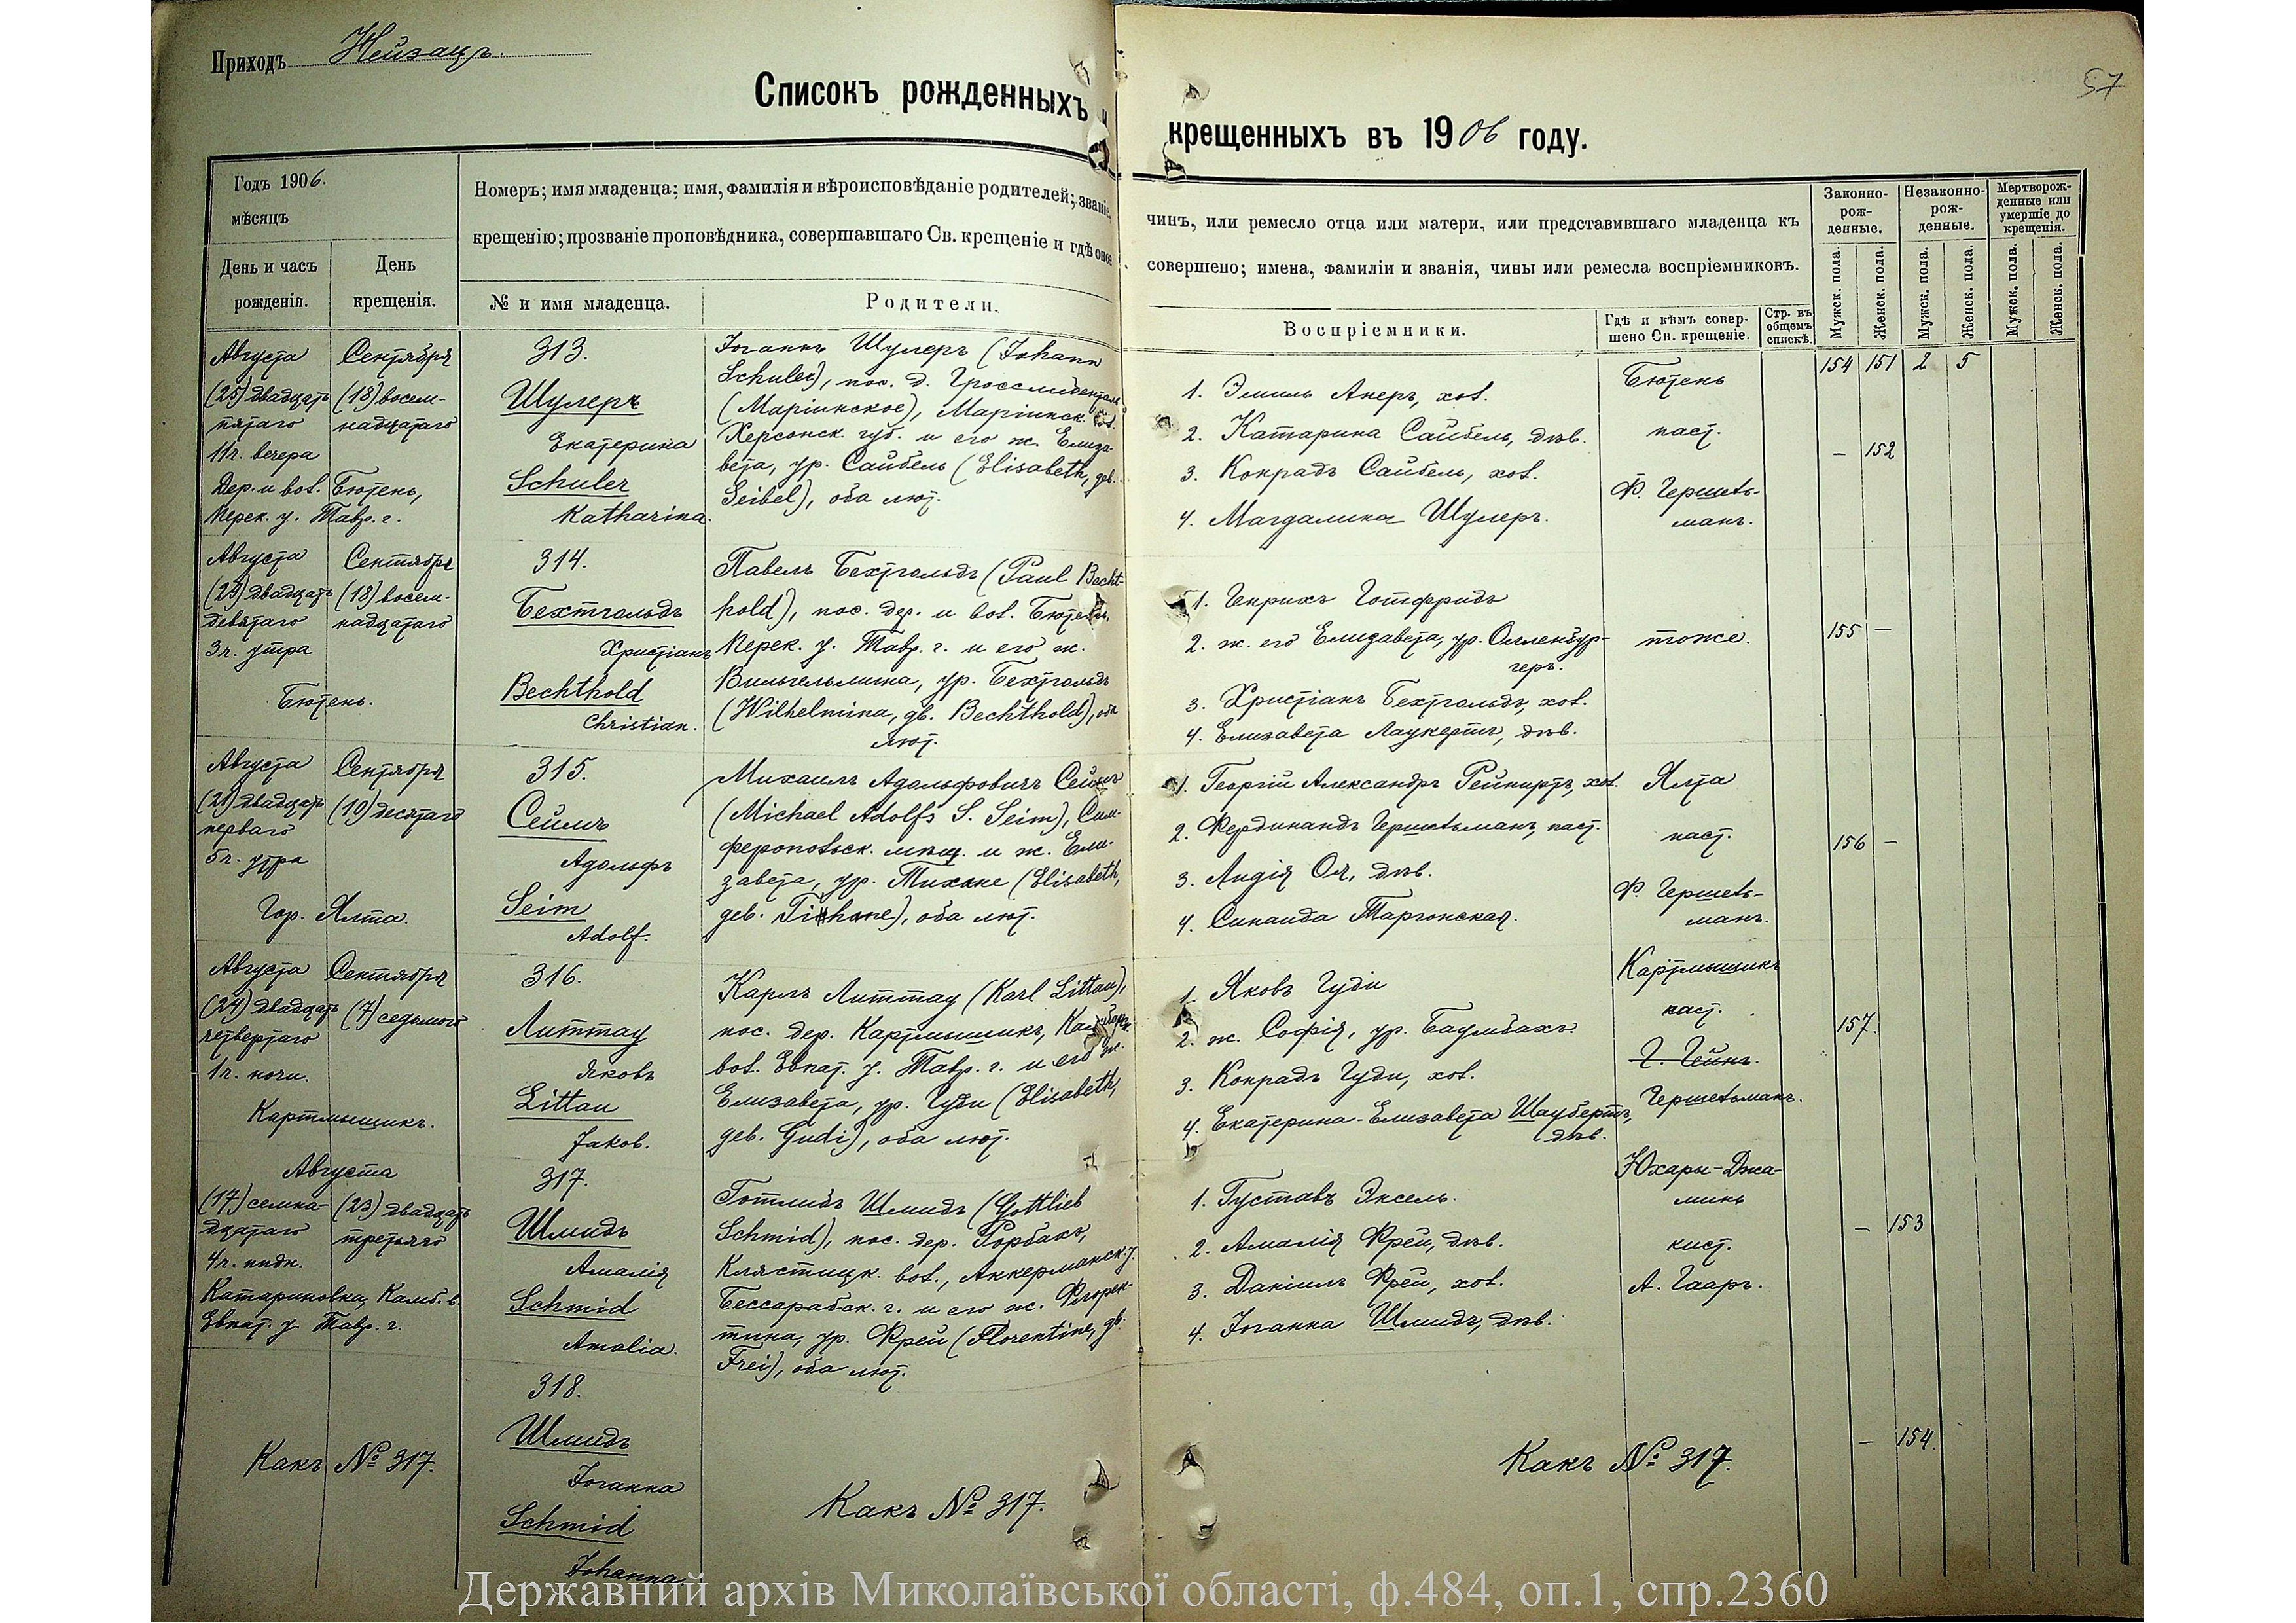 Приходъ Нейзацъ.
57
Списокъ рожденныхъ и крещенныхъ въ 1906 году.
Годъ 1906.
мѣсяцъ
День и часъ рожденія.
День крещенія.
Номеръ; имя младенца; имя, фамилія и вѣроисповѣданіе родителей; званіе,
крещенію; прозваніе проповѣдника, совершавшаго Св. крещеніе и гдѣ оное
№ и имя младенца.
Родители.
чинъ, или ремесло отца или матери, или представившаго младенца къ
совершено; имена, фамиліи и званія, чины или ремесла воспріемниковъ.
Воспріемники.
Гдѣ и кѣмъ совершено Св. крещеніе.
Стр. въ общемъ спискѣ.
Законно-рож-денные.
Незаконно-рож-денные.
Мертворож-денные или умершіе до крещенія.
Мужск. пола.
Женск. пола.
Мужск. пола.
Женск. пола.
Мужск. пола.
Женск. пола.
154 151 2 5
Августа
(25) двадцать
пятаго
11ч. вечера
Дер. и вол. Бютень,
Перек. у. Тавр. г.
Сентября
(18) восем-
надцатаго
313.
Шулеръ
Екатерина
Schuler
Katharina.
Іоганнъ Шулеръ (Johann
Schuler), пос. д. Гросслибенталь
(Маріинское), Маріинск. вол.
Херсонск. губ. и его ж. Елиза-
вета, ур. Сайбель (Elisabeth, geb.
Seibel), оба лют.
1. Эмиль Анеръ, хол.
2. Катарина Сайбель, дѣв.
3. Конрадъ Сайбель, хол.
4. Магдалина Шулеръ.
Бютень
паст.
Ф. Гершель-
манъ.
– 152
Августа
(29) двадцать
девятаго
3ч. утра
Бютень.
Сентября
(18) восем-
надцатаго
314.
Бехтгольдъ
Христіанъ
Bechthold
Christian.
Павелъ Бехтгольдъ (Paul Becht-
hold), пос. дер. и вол. Бютень,
Перек. у. Тавр. г. и его ж.
Вильгельмина, ур. Бехтгольдъ
(Wilhelmina, gb. Bechthold), оба
лют.
1. Генрихъ Готфридъ
2. ж. его Елизавета, ур. Олленбур-
геръ.
3. Христіанъ Бехтгольдъ, хол.
4. Елизавета Лаукертъ, дѣв.
тоже.
155 –
Августа
(21) двадцать
перваго
5ч. утра
Гор. Ялта.
Сентября
(10) десятаго
315.
Сеймъ
Адольфъ
Seim
Adolf.
Михаилъ Адольфовичъ Сеймъ
(Michael Adolfs S. Seim), Сим-
феропольск. мѣщ. и ж. Ели-
завета, ур. (Elisabeth,
geb. ), оба лют.
1. Георгій Александръ Рейниртъ, хол.
2. Фердинандъ Гершельманъ, паст.
3. Лидія Ол, дѣв.
4. Синаида Таргонская.
Ялта
паст.
Ф. Гершель-
манъ.
156 –
Августа
(24) двадцать
четвертаго
1ч. ночи.
Картмышикъ.
Сентября
(7) седьмого
316.
Литтау
Яковъ
Littau
Jakob.
Карлъ Литтау (Karl Littau),
пос. дер. Картмышикъ,
вол. Евпат. у. Тавр. г. и его ж.
Елизавета, ур. Гуди (Elisabeth,
geb. Gudi), оба лют.
1. Яковъ Гуди
2. ж. Софія, ур. Баумбахъ.
3. Конрадъ Гуди, хол.
4. Екатерина-Елизавета Шаубертъ,
дѣв.
Картмышикъ
паст.
Г. Гейнъ.
Гершельманъ.
157.
Августа
(17) семна-
дцатаго
4ч. ппдн.
Катариновка, Камб. в.
Евпат. у. Тавр. г.
(23) двадцать
третьяго
317.
Шмидъ
Амалія
Schmid
Amalia.
Готлибъ Шмидъ (Gottlieb
Schmid), пос. дер. Рорбахъ,
Клястицк. вол., Аккерманск. у.
Бессарабск. г. и его ж. Флорен-
тина, ур. Фрей (Florentine, gb.
Frei), оба лют.
1. Густавъ Эксель.
2. Амалія Фрей, дѣв.
3. Даніилъ Фрей, хол.
4. Іоганна Шмидъ, дѣв.
Юхары-Джа-
минъ
кист.
А. Гааръ.
– 153
Какъ № 317.
318.
Шмидъ
Іоганна
Schmid
Johanna
Какъ № 317.
Какъ № 317.
– 154.
Державний архів Миколаївської області, ф.484, оп.1, спр.2360